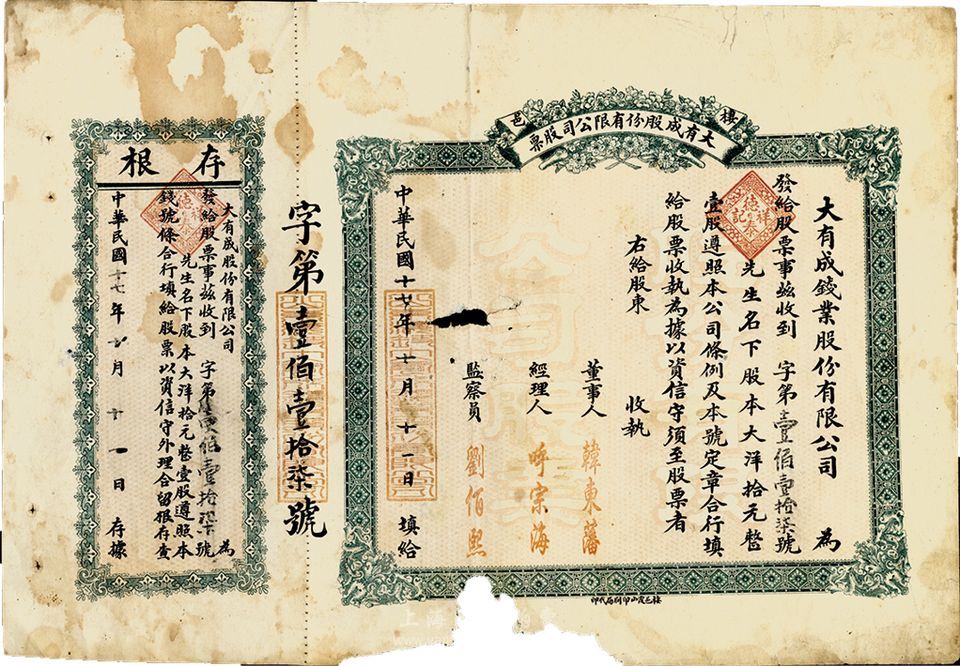 棲邑
大有成股份有限公司股票
大有成錢業股份有限公司 為
發給股票事茲收到 字第壹佰壹拾柒號
德祥泰記
先生名下股本大洋拾元整
壹股遵照本公司條例及本號定章合行填
給股票收執為據以資信守須至股票者
右給股東 收執
董事人 韓東藩
經理人 呼宗海
監察員 劉佰熙
中華民國十七年十月二十一日 填給
棲邑霞山印刷局代印
字第壹佰壹拾柒號
存根
大有成股份有限公司 為
發給股票事茲收到 字第壹佰壹拾柒號
德祥泰
先生名下股本大洋拾元整壹股遵照本
錢號條合行填給股票以資信守外理合留根存查
中華民國十七年 月 十一日 存據